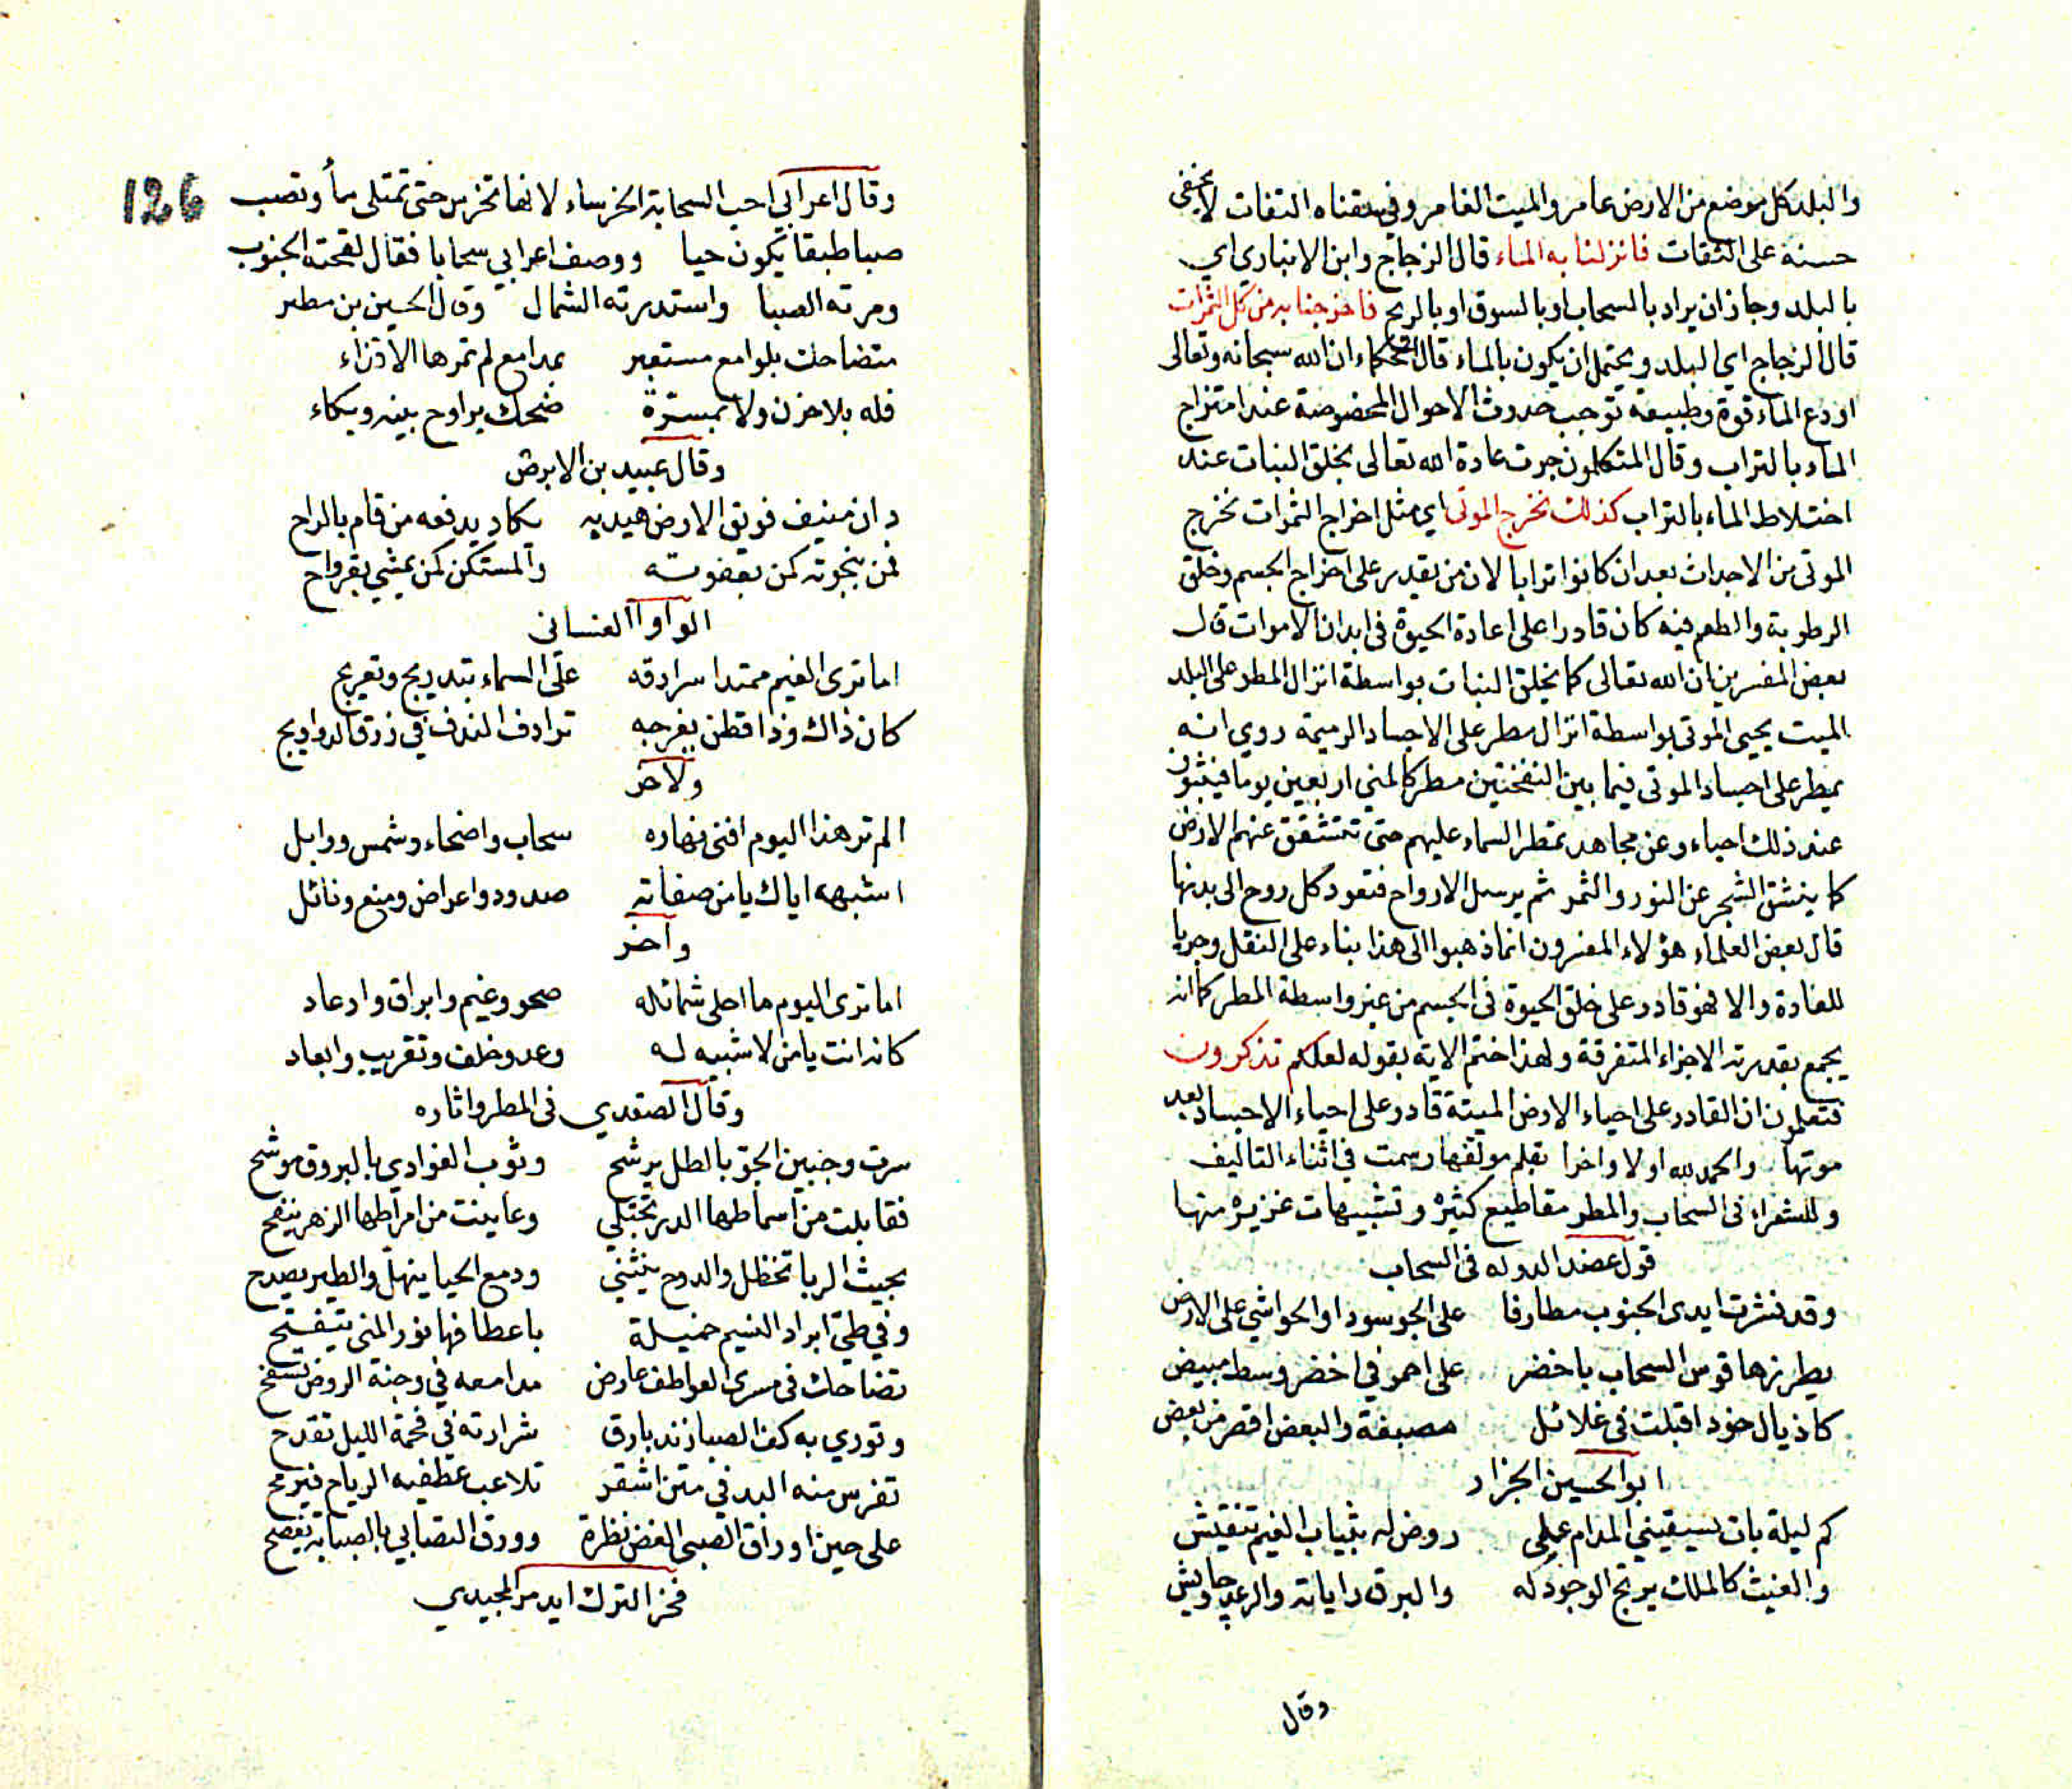 والبلد كل موضع من الارض عامر والميت الغامر وفي سقناه التفات لا يخفى
حسنه على الثقات فانزلنا به الماء قال الزجاج وابن الانباري اي
بالبلد وجاز ان يراد بالسحاب او بالسوق او بالريح فاخرجنا به من كل الثمرات
قال الزجاج اي البلد ويحتمل ان يكون بالماء قال الحكماء ان الله سبحانه وتعالى
اودع الماء قوة وطبيعة توجب حدوث الاحوال المخصوصة عند امتزاج
الماء بالتراب وقال المتكلمون جرت عادة الله تعالى بخلق النبات عند
اختلاط الماء بالتراب كذلك نخرج الموتى اي مثل اخراج الثمرات نخرج
الموتى من الاجداث بعد ان كانوا ترابا لان من يقدر على اخراج الجسم وخلق
الرطوبة والطعم فيه كان قادرا على اعادة الحيوة في ابدان الاموات قال
بعض المفسرين ان الله تعالى كما يخلق النبات بواسطة انزال المطر على البلد
الميت يحيى الموتى بواسطة انزال مطر على الاجساد الرميمة روي انه
يمطر على اجساد الموتى فيما بين النفختين مطر كالمني اربعين يوما فينبتون
عند ذلك احياء وعن مجاهد تمطر السماء عليهم حتى تتشقق عنهم الارض
كما ينشق الشجر عن النور والثمر ثم يرسل الارواح فتعود كل روح الى بدنها
قال بعض العلماء هؤلاء المفسرون انما ذهبوا الى هذا بناء على النقل وجريا
للعادة والا فهو قادر على خلق الحيوة في الجسم من غير واسطة المطر كما انه
يجمع بقدرته الاجزاء المتفرقة ولهذا ختم الاية بقوله لعلكم تذكرون
فتعلمون ان القادر على احياء الارض الميتة قادر على احياء الاجساد بعد
موتها والحمد لله اولا واخرا بقلم مولفها رسمت في اثناء التاليف
وللشعراء في السحاب والمطر مقاطيع كثيرة وتشبيهات غزيره منها
قول عضد الدوله في السحاب
وقد نشرت ايدى الجنوب مطارفا على الجو سودا والحواشي على الارض
يطرزها قوس السحاب باخضر على احمر في اخضر وسط مبيض
كاذيال خود اقبلت في غلائل مصبغة والبعض اقصر من بعض
ابو الحسين الجزار
كم ليلة بات يسقيني المدام على روض له بثياب الغيم تنقيش
والغيث كالملك يرتج الوجود له والبرق راياته والرعد جاويش
وقال
126
وقال اعرابي احب السحابة الخرساء لانها تخرس حتى تمتلى ماء وتصب
صبا طبقا يكون حيا ووصف اعرابي سحابا فقال لقحته الجنوب
ومرته الصبا واستدبرته الشمال وقال الحسين بن مطير
متضاحك بلوامع مستعبر بمدامع لم تمرها الاقذاء
فله بلا حزن ولا بمسرة ضحك يراوح بينه وبكاء
وقال عبيد بن الابرص
دان منيف فويق الارض هيدبه يكاد يدفعه من قام بالراح
فمن بنجوته كمن بعقوته والمستكن كمن يمشي بقرواح
الواوا الغساني
اما ترى الغيم ممتدا سرادقه على السماء بتدريج وتعريج
كان ذاك وذا قطن يفرجه ترادف الندف في زرق الدواويج
ولاخر
الم تر هذا اليوم افنى نهاره سحاب واضحاء وشمس ووابل
اشبهه اياك يا من صفاته صدود واعراض ومنع ونائل
واخر
اما ترى اليوم ما احلى شمائله صحو وغيم وابراق وارعاد
كانه انت يا من لا شبيه له وعد وخلف وتقريب وابعاد
وقال الصفدي في المطر واثاره
سرت وجبين الجو بالطل يرشح وثوب الغوادي بالبروق موشح
فقابلت من اسماطها الدر تجتلي وعاينت من امراطها الزهر ينفح
بحيث الربا تخظل والدوح ينثني ودمع الحيا ينهل والطير يصدح
وفي طي ابراد النسيم خميلة باعطافها نور المنى يتفتح
تضاحك في مسرى العواطف عارض مدامعه في وجنة الروض تسفح
وتوري به كف الصبا زند بارق شرارته في فحمة الليل تقدح
تفرس منه البدر في متن اشقر تلاعب عطفيه الرياح فيرمح
على حين اوراق الصبى الغض نظرة وورق التصابي بالصبابة تفصح
فخر الترك ايدمر المجيدي